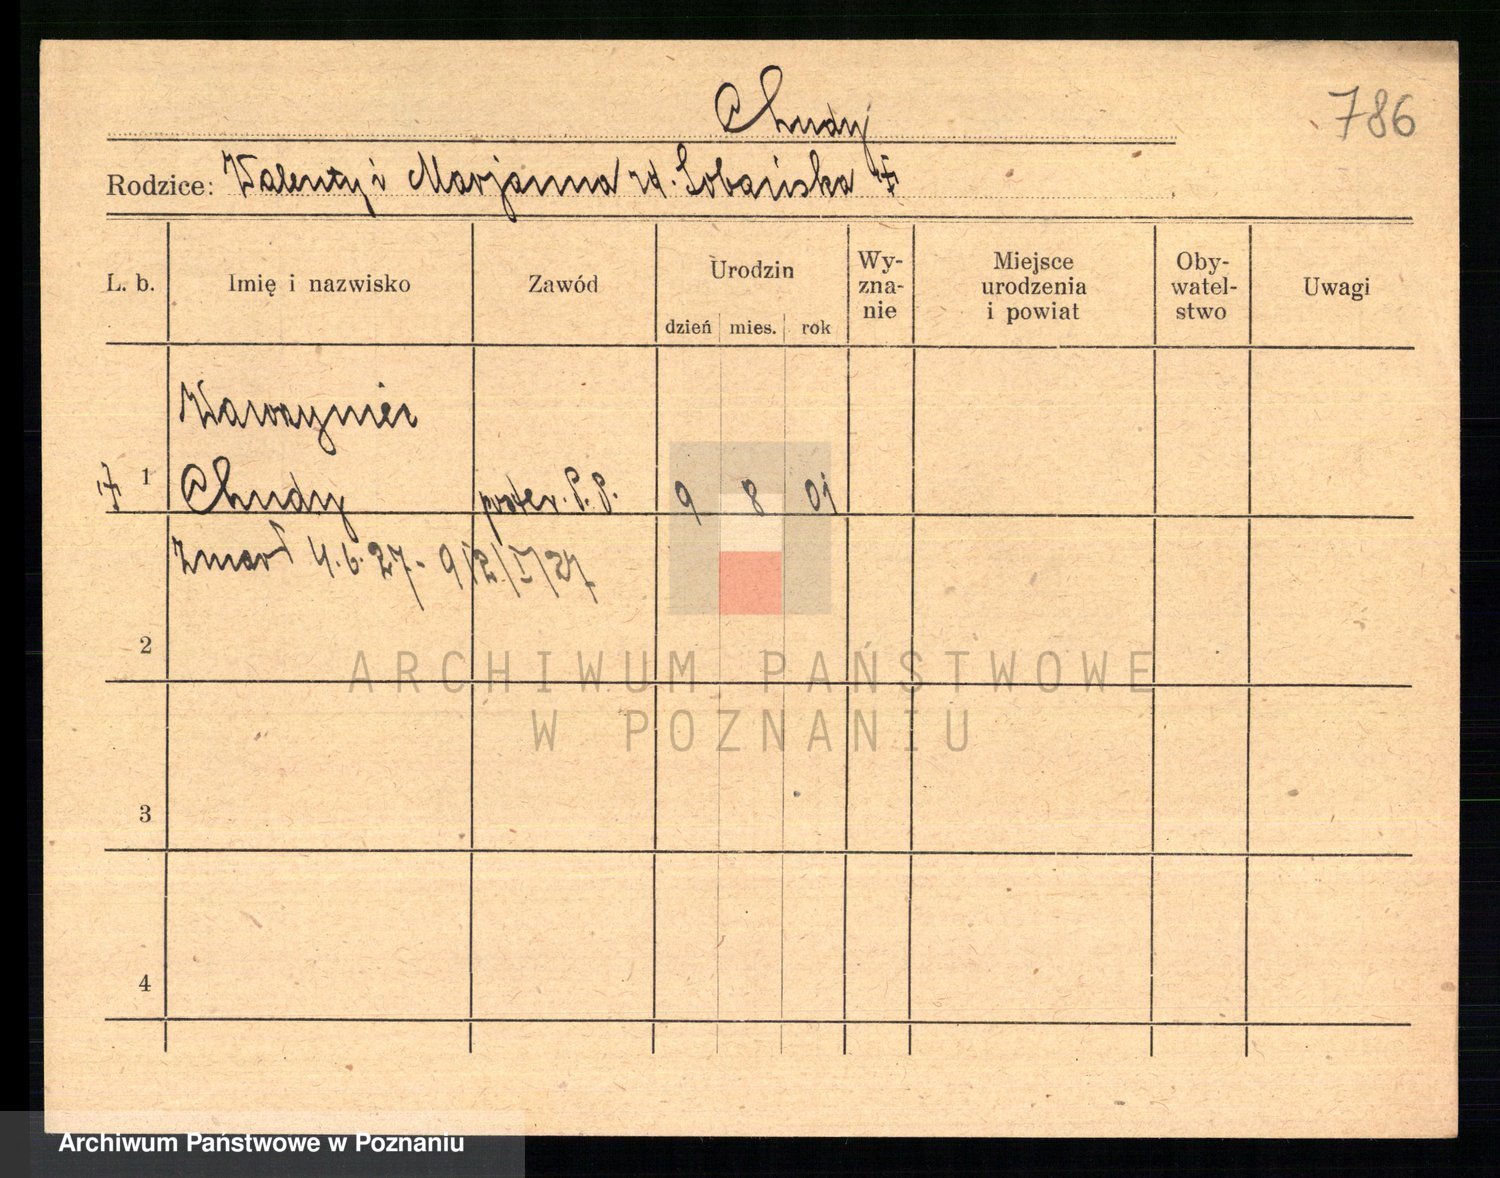 Chudy
786
Rodzice: Walenty i Marjanna rd. Sobańska
L. b. Imię i nazwisko Zawód Urodzin dzień mies. rok Wy-zna-nie Miejsce urodzenia i powiat Oby-watel-stwo Uwagi
Wawrzyniec
1 Chudy poster. P. P. 9 8 01
zmarł 4.6.27 -
2
ARCHIWUM PAŃSTWOWE
W POZNANIU
3
4
Archiwum Państwowe w Poznaniu